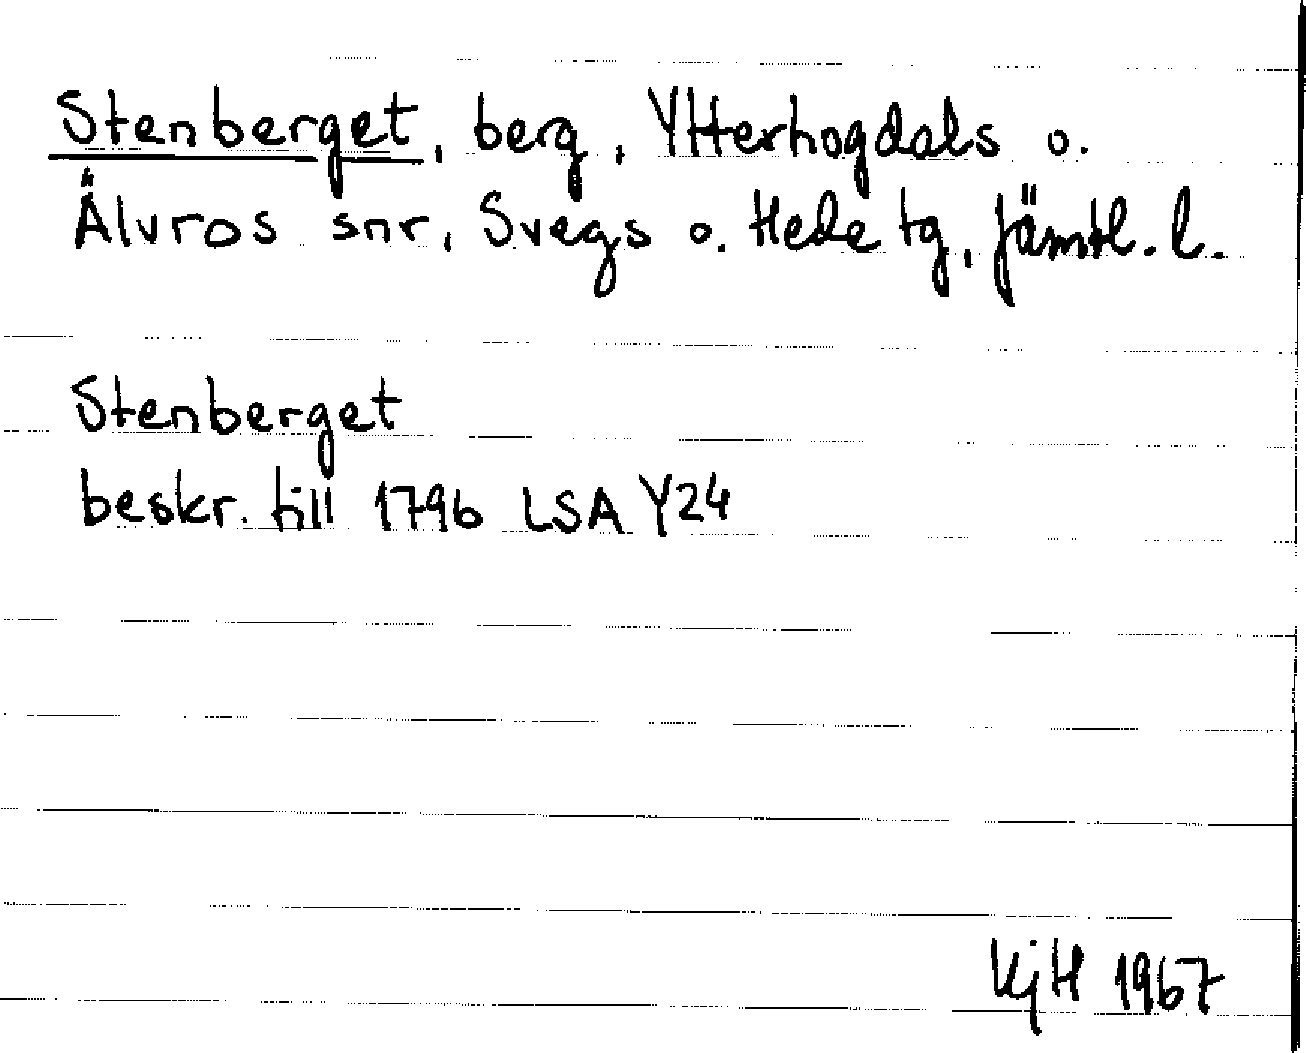 Stenberget, berg, Ytterhogdals o.
Älvros snr, Svegs o. Hede tg, Jämtl. l.
Stenberget
beskr. till 1796 LSA Y24
KjH 1967